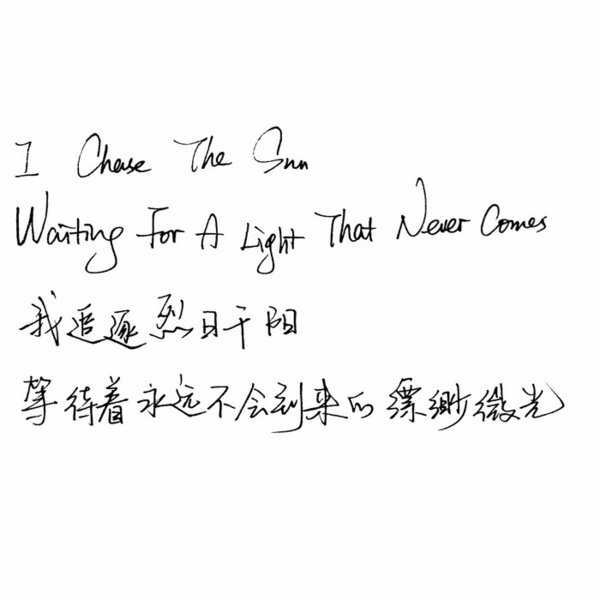 I Chase The Sun
Waiting For A Light That Never Comes
我追逐烈日千阳
等待着永远不会到来的缥缈微光